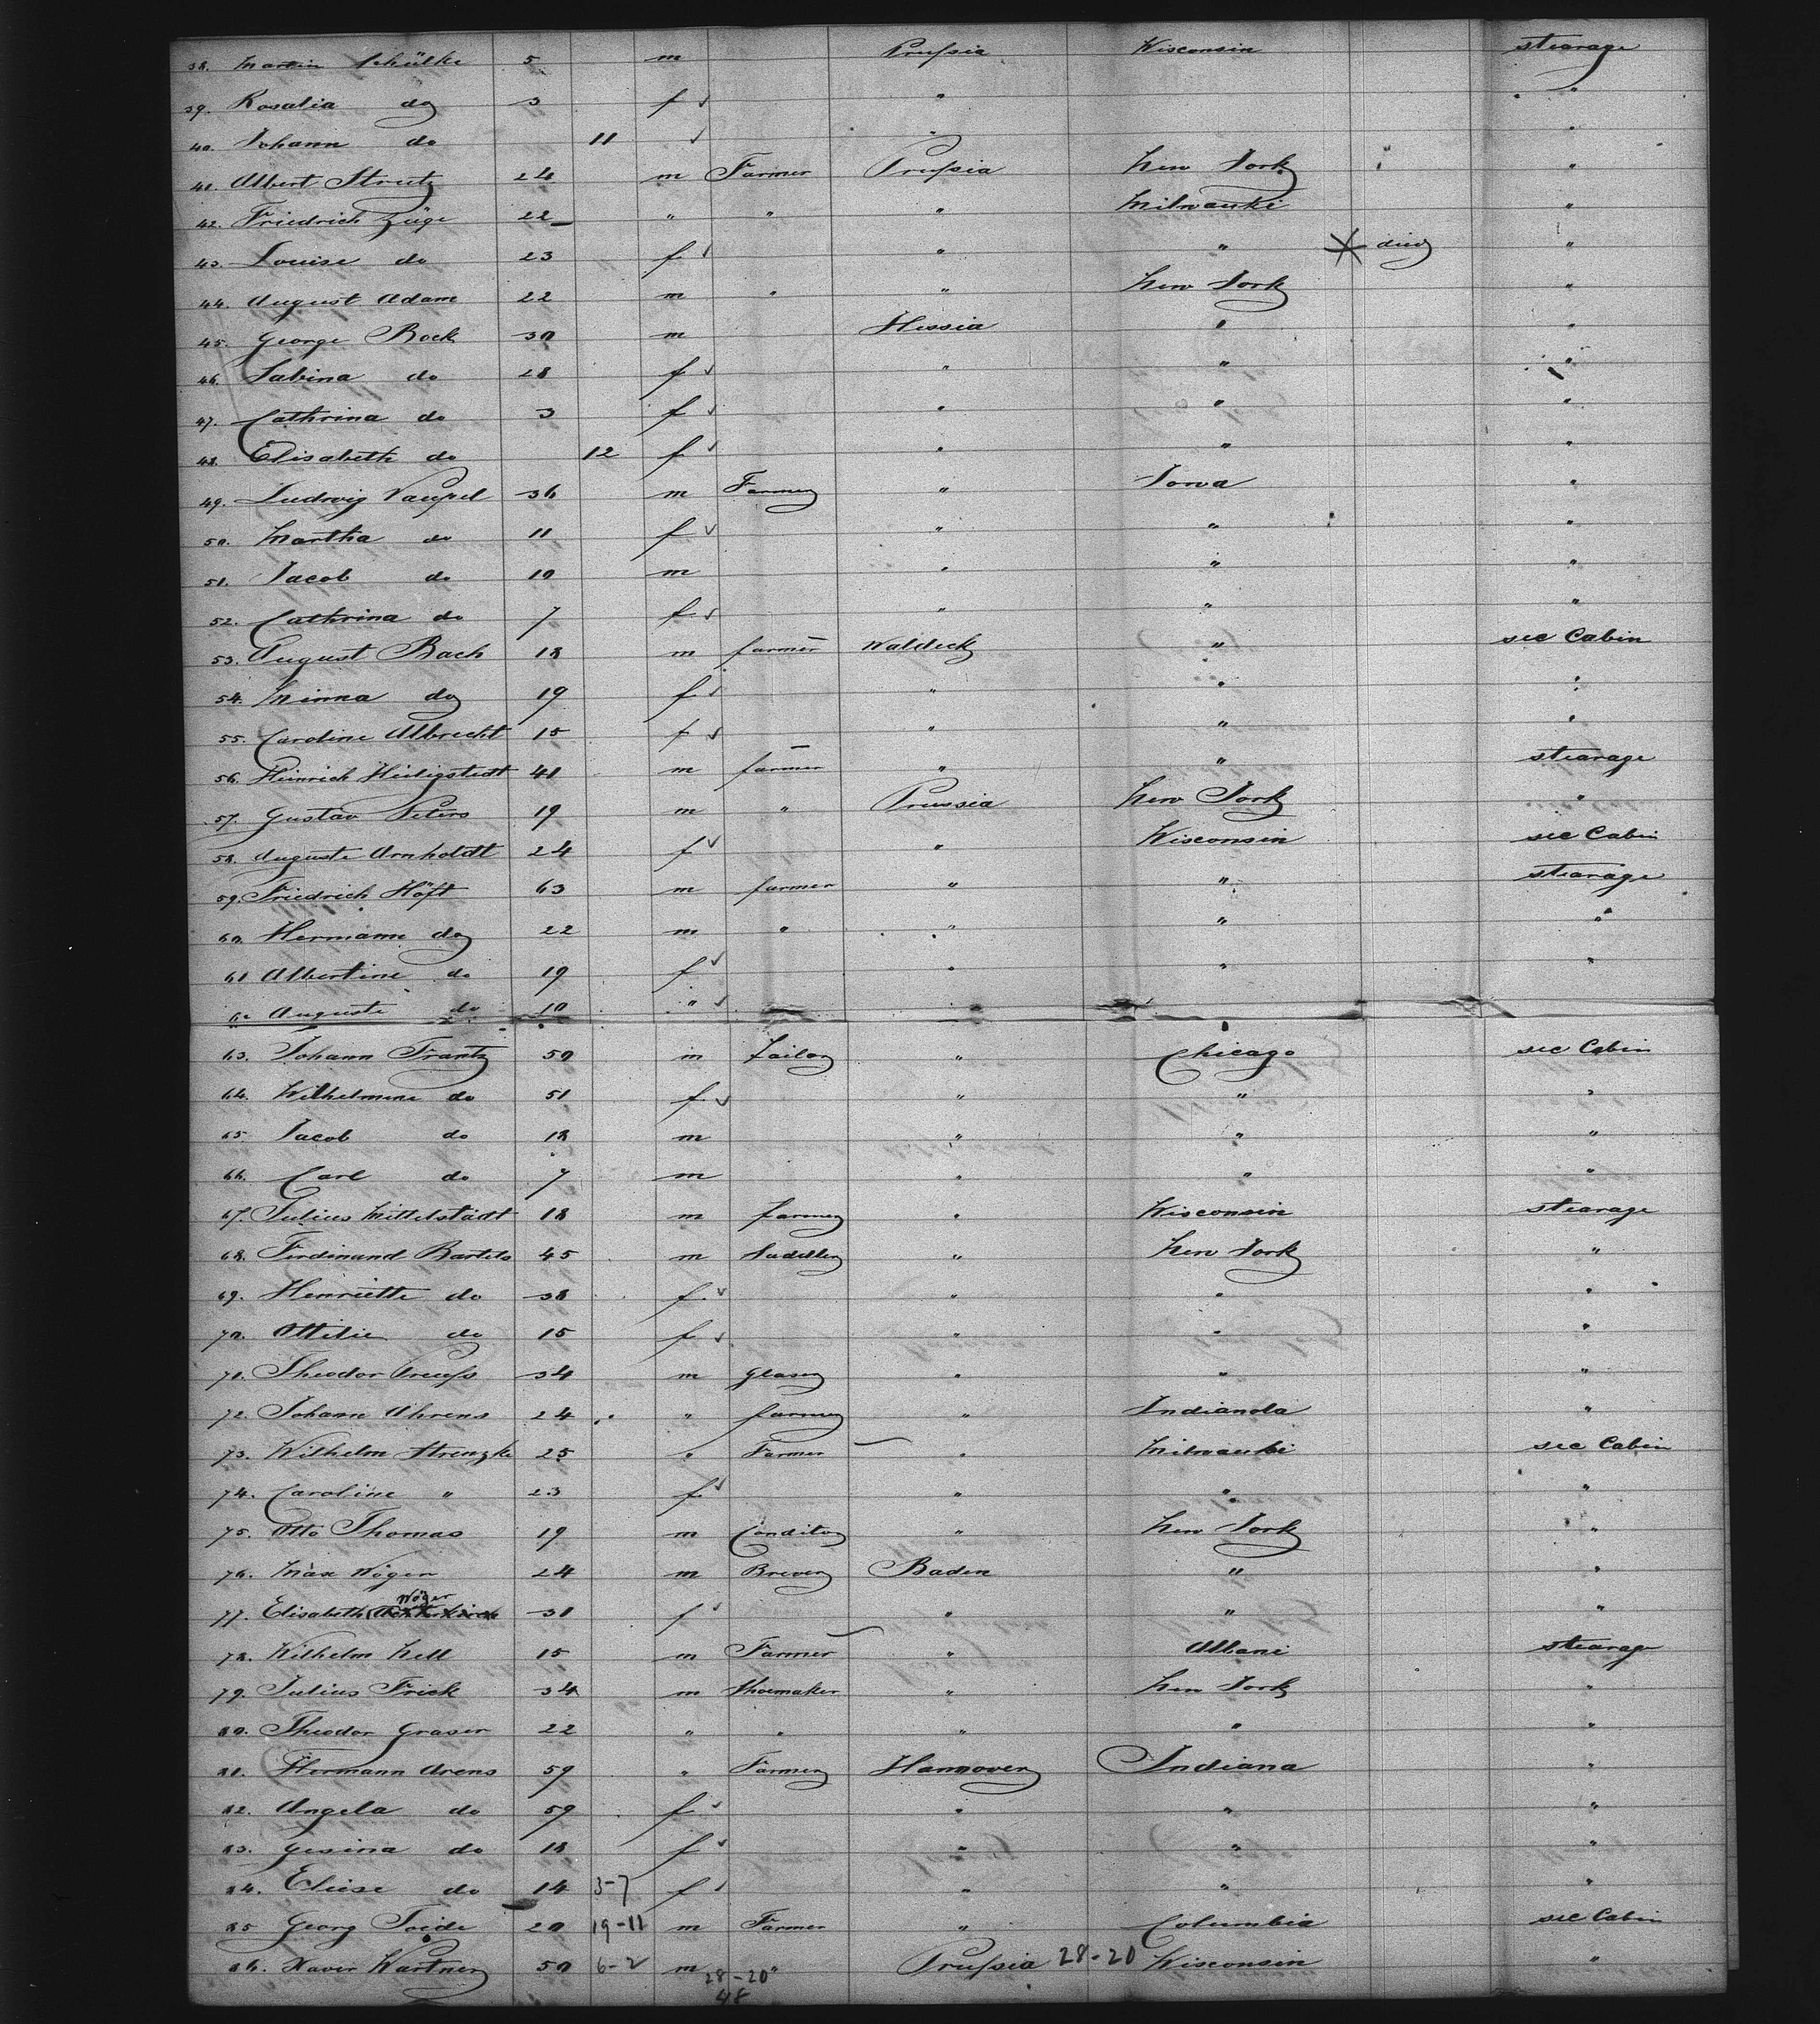 38. Martin Schülke 5 m Prussia Wisconsin stearage
39. Rosalia do 3 f ✓ " "
40. Johann do 11 ✓ " "
41. Albert Strutz 24 m Farmer Prussia New York "
42. Friedrich Züge 22 " " " Milwauki "
43. Louise do 23 f ✓ " " died "
44. August Adam 22 m " " New York "
45. George Bock 30 m Hessia " "
46. Sabina do 28 f ✓ " " "
47. Cathrina do 3 f ✓ " " "
48. Elisabeth do 12 f ✓ " " "
49. Ludwig Vaupel 36 m Farmer " Iowa "
50. Martha do 11 f ✓ " " "
51. Jacob do 10 m " " "
52. Cathrina do 7 f ✓ " " "
53. August Bach 18 m farmer Waldeck " sec Cabin
54. Minna do 19 f ✓ " " "
55. Caroline Albrecht 15 f ✓ " " "
56. Heinrich Heiligstedt 41 m farmer " " stearage
57. Gustav Peters 19 m " Prussia New York "
58. Auguste Arnholdt 24 f ✓ " Wisconsin sec Cabin
59. Friedrich Höft 63 m farmer " " stearage
60. Hermann do 22 m " " " "
61 Albertine do 19 f ✓ " " "
62 Auguste do 10 " ✓
63. Johann Frantz 50 m Tailor " Chicago sec Cabin
64. Wilhelmine do 51 f ✓ " " "
65. Jacob do 18 m " " "
66. Carl do 7 m " " "
67. Julius Mittelstädt 18 m farmer " Wisconsin stearage
68. Ferdinand Bartels 45 m Saddler " New York "
69. Henriette do 38 f ✓ " " "
70. Ottilie do 15 f ✓ " " "
71. Theodor Preuss 34 m Glaser " " "
72. Johann Ahrens 24 " farmer " Indianola "
73. Wilhelm Strenzke 25 " Farmer " Milwauki sec Cabin
74. Caroline " 23 f ✓ " " "
75. Otto Thomas 19 m Conditor " New York "
76. Max Wöger 24 m Brever Baden " "
77. Elisabeth Wöger 31 f ✓ " " "
78. Wilhelm Kell 15 m Farmer " Albani stearage
79. Julius Frick 34 m Shoemaker " New York "
80. Theodor Graser 22 " " " " "
81. Hermann Arens 59 " Farmer Hannover Indiana "
82. Angela do 59 f ✓ " " "
83. Gesina do 18 f ✓ " " "
84. Eliese do 14 3-7 f ✓ " " "
85 Georg Toide 20 19-11 m Farmer " Columbia sec Cabin
86. Xaver Wartner 50 6-2 m " Prussia 28-20 Wisconsin "
28-20
48